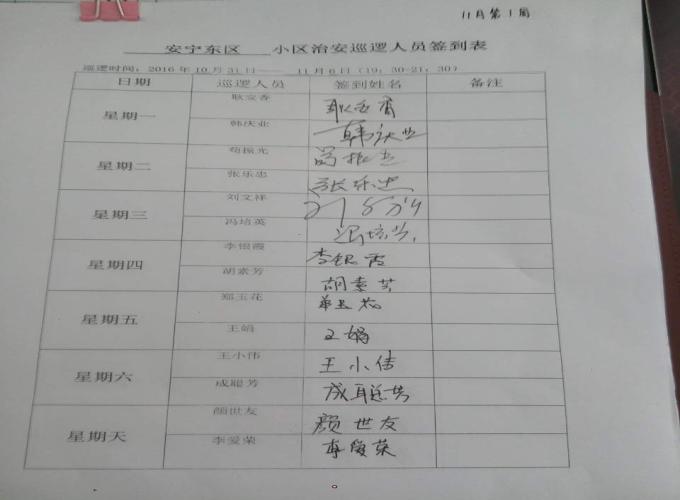 11月第1周
安宁东区 小区治安巡逻人员签到表
巡逻时间：2016年10月31日—— 11月6日（19：30-21：30）
日期 巡逻人员 签到姓名 备注
星期一 耿文香
韩庆业 韩庆业
星期二 苟振光
张乐忠 张乐忠
星期三 刘文祥
冯培英 冯培英
星期四 李银霞 李银霞
胡素芳 胡素芳
星期五 郑玉花
王娟 王娟
星期六 王小伟 王小伟
成聪芳 成聪芳
星期天 颜世友 颜世友
李爱荣 李爱荣